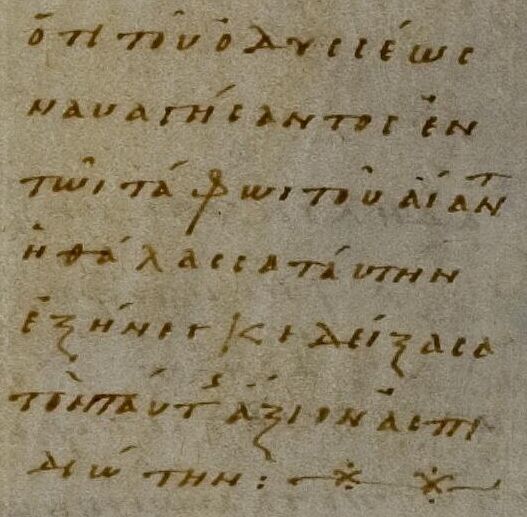 ὅτι τοῦ ὀδυσσέως
ναυαγήσαντος ἐν
τῶι τάφωι τοῦ αἴαντ
ἡ θάλασσα ταύτην
ἐξήνεγκε δείξασα
τὸν ταύτ ἄξιον ἀσπι
διώτην: